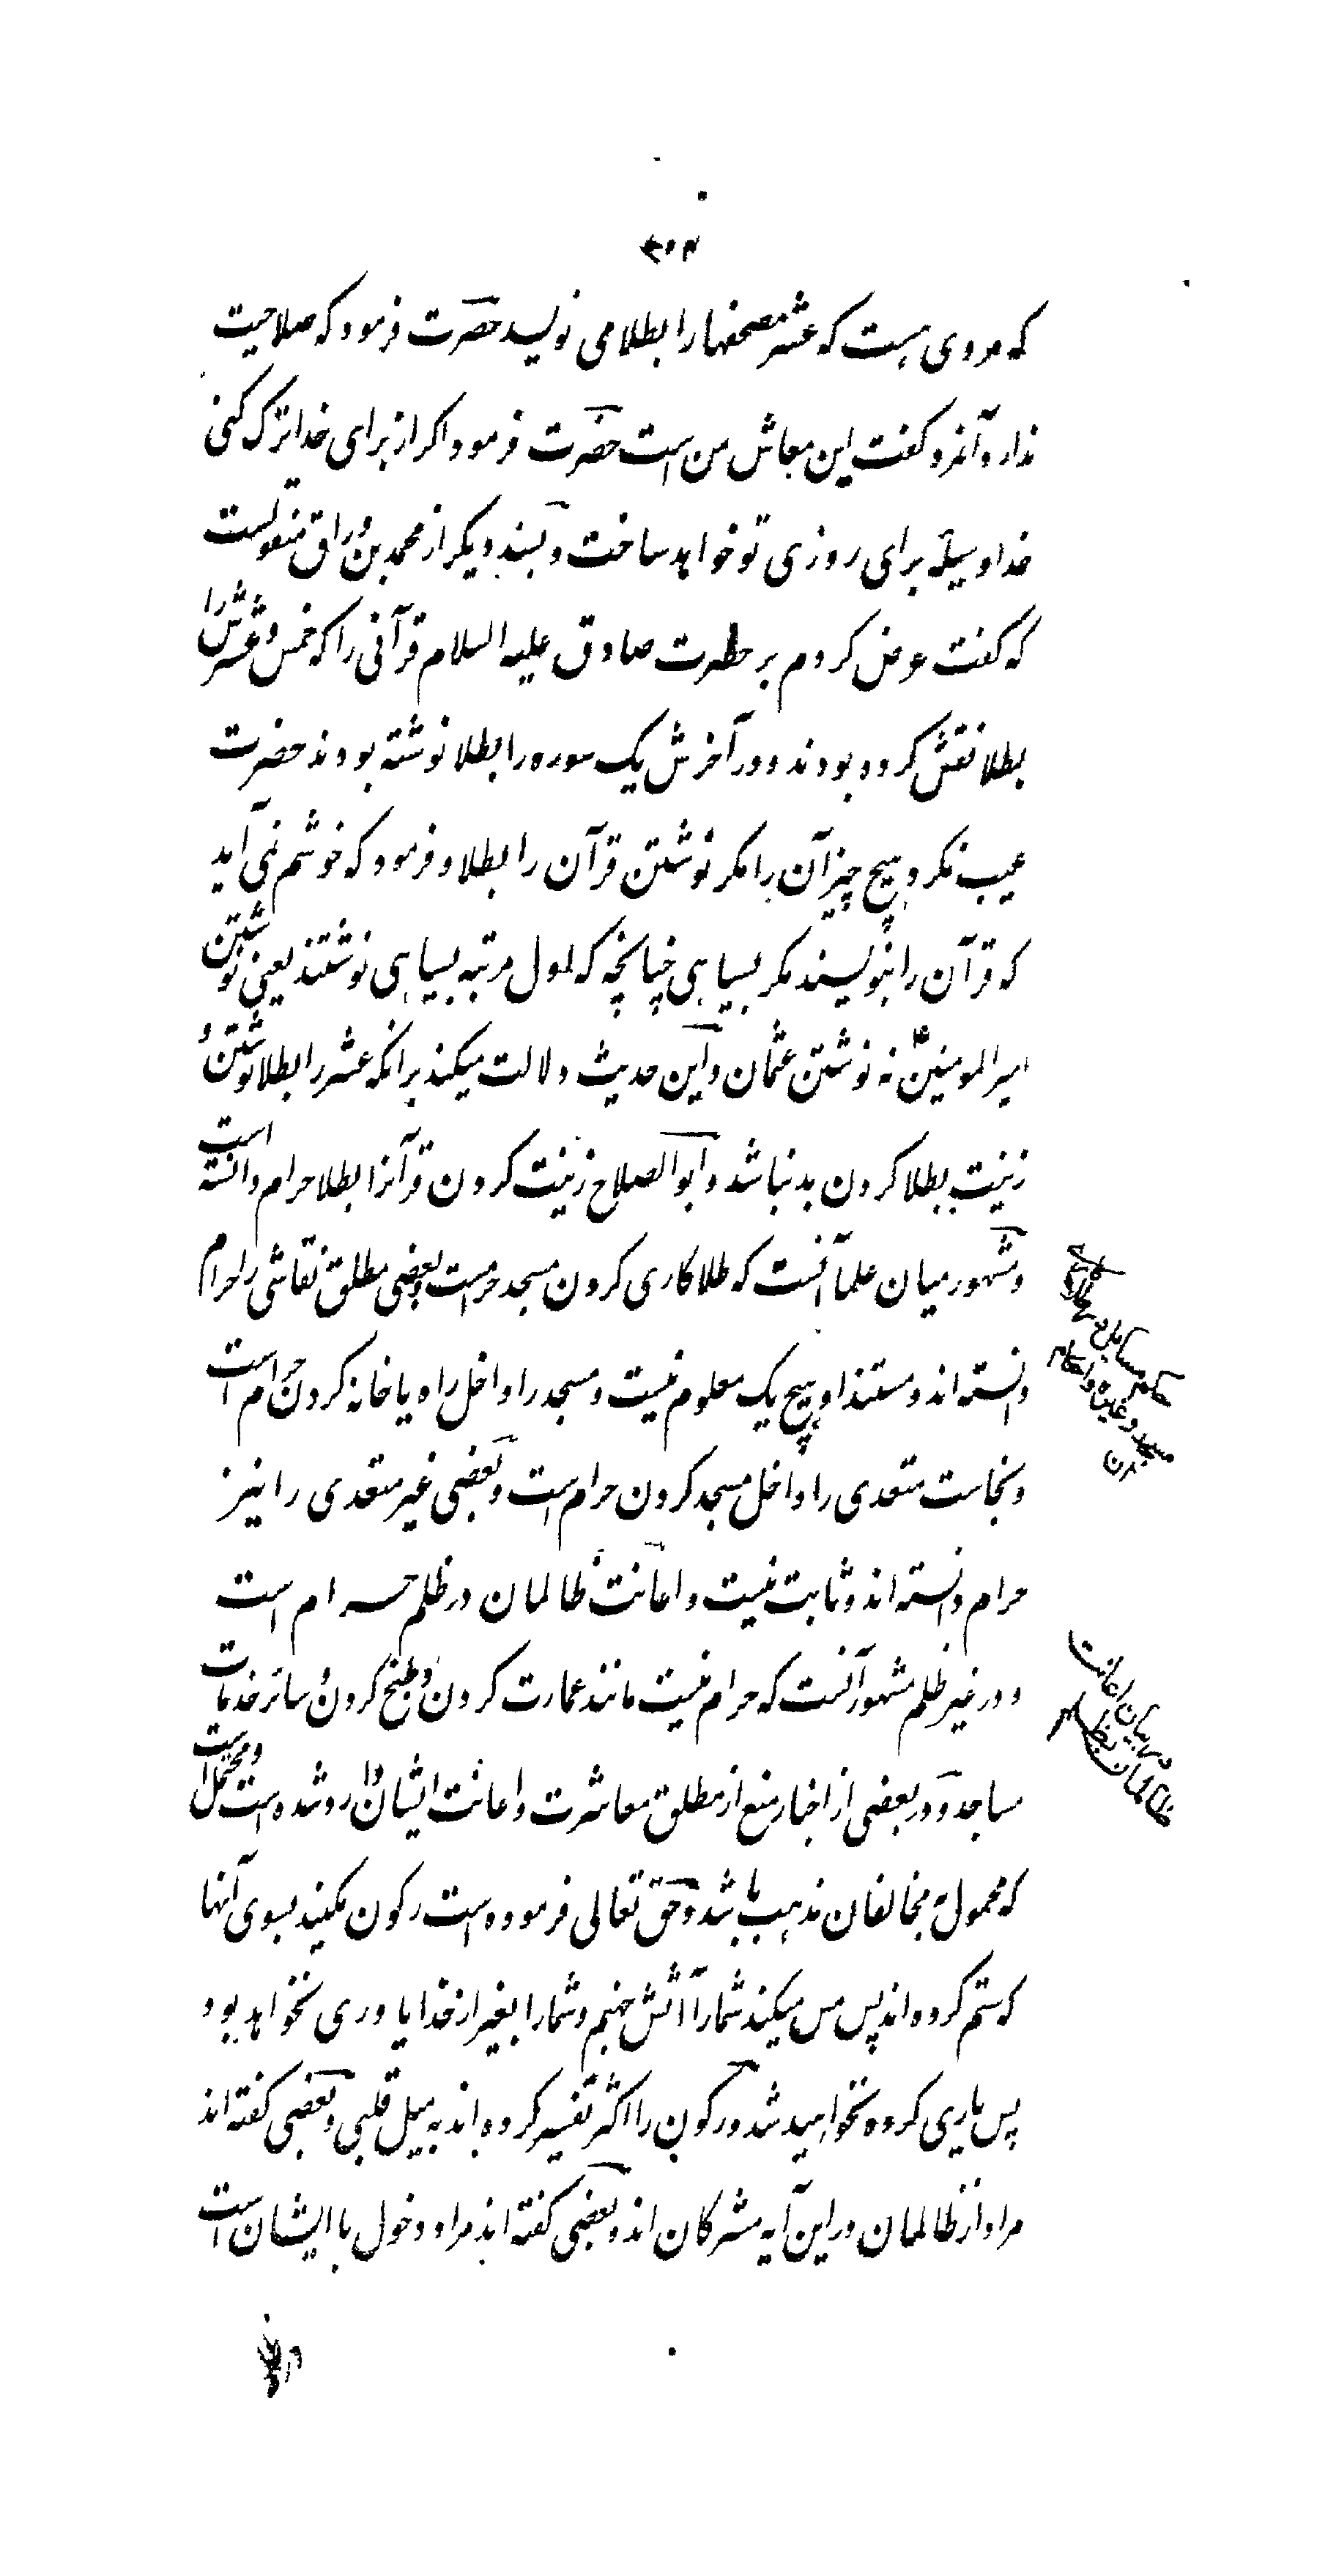 که مردی هست که عشر مصحفها را بطلا می نویسد حضرت فرمود که صلاحیت
ندارد آنمرد کفت این معاش من است حضرت فرمود اکر از برای خدا ترک کنی
خدا وسیله برای روزی تو خواهد ساخت و بسند دیکر از محمد بن وراق منقولست
که کفت عرض کردم بر حضرت صادق علیه السلام قرآنی را که خمس و عشرش را
بطلا نقش کرده بودند و در آخرش یک سوره را بطلا نوشته بودند حضرت
عیب نکرد هیچ چیز آن را مکر نوشتن قرآن را بطلا و فرمود که خوشم نمی آید
که قرآن را بنویسند مکر بسیاهی چنانچه که اول مرتبه بسیاهی نوشتند یعنی نوشتن
امیرالمومنین نه نوشتن عثمان و این حدیث دلالت میکند برانکه عشر را بطلا نوشتن و
زینت بطلا کردن بد نباشد و ابو الصلاح زینت کردن قرآنرا بطلا حرام دانسته است
و مشهور میان علما آنست که طلا کاری کردن مسجد حرامست و بعضی مطلق نقاشی را حرام
دانسته اند و مستند او هیچ یک معلوم نیست و مسجد را داخل راه یا خانه کردن حرام است
و نجاست متعدی را داخل مسجد کردن حرام است و بعضی غیر متعدی را نیز
حرام دانسته اند و ثابت نیست و اعانت ظالمان در ظلم حرام است
و در غیر ظلم مشهور آنست که حرام نیست مانند عمارت کردن و طبخ کردن و سائر خدمات
مساجد و در بعضی از اخبار منع از مطلق معاشرت و اعانت ایشان وارد شده است و محتمل است
که محمول بر مخالفان مذهب باشد و حق تعالی فرموده است رکون مکنید بسوی آنها
که ستم کرده اند پس مس میکند شما را آتش جهنم و شما را بغیر از خدا یاوری نخواهد بود
پس یاری کرده نخواهید شد و رکون را اکثر تفسیر کرده اند به میل قلبی و بعضی کفته اند
مراد از ظالمان در این آیه مشرکان اند و بعضی کفته اند مراد دخول با ایشان است
در بیان اعانت
ظالمان بظلم